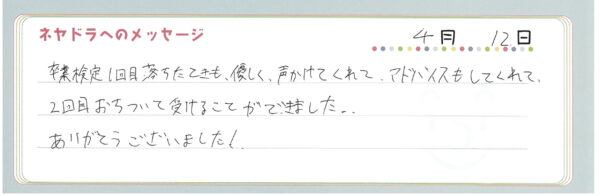 ネヤドラへのメッセージ
4月 12日
卒業検定1回目落ちたときも、優しく、声かけてくれて、アドバイスもしてくれて、
2回目おちついて受けることができました。
ありがとうございました!